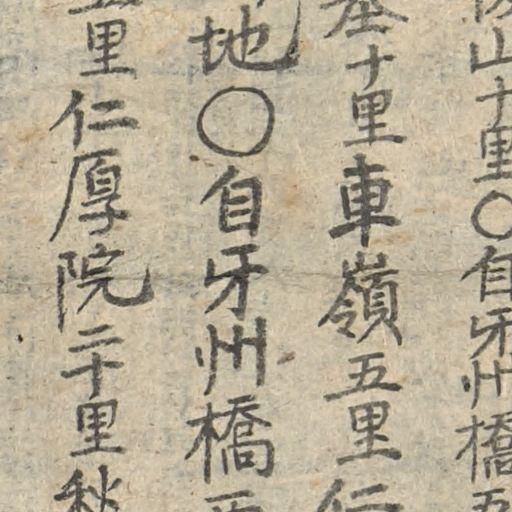 山十里〇自牙州橋五
十里車嶺五里仁
地〇自牙州橋
里仁厚院二十里秋